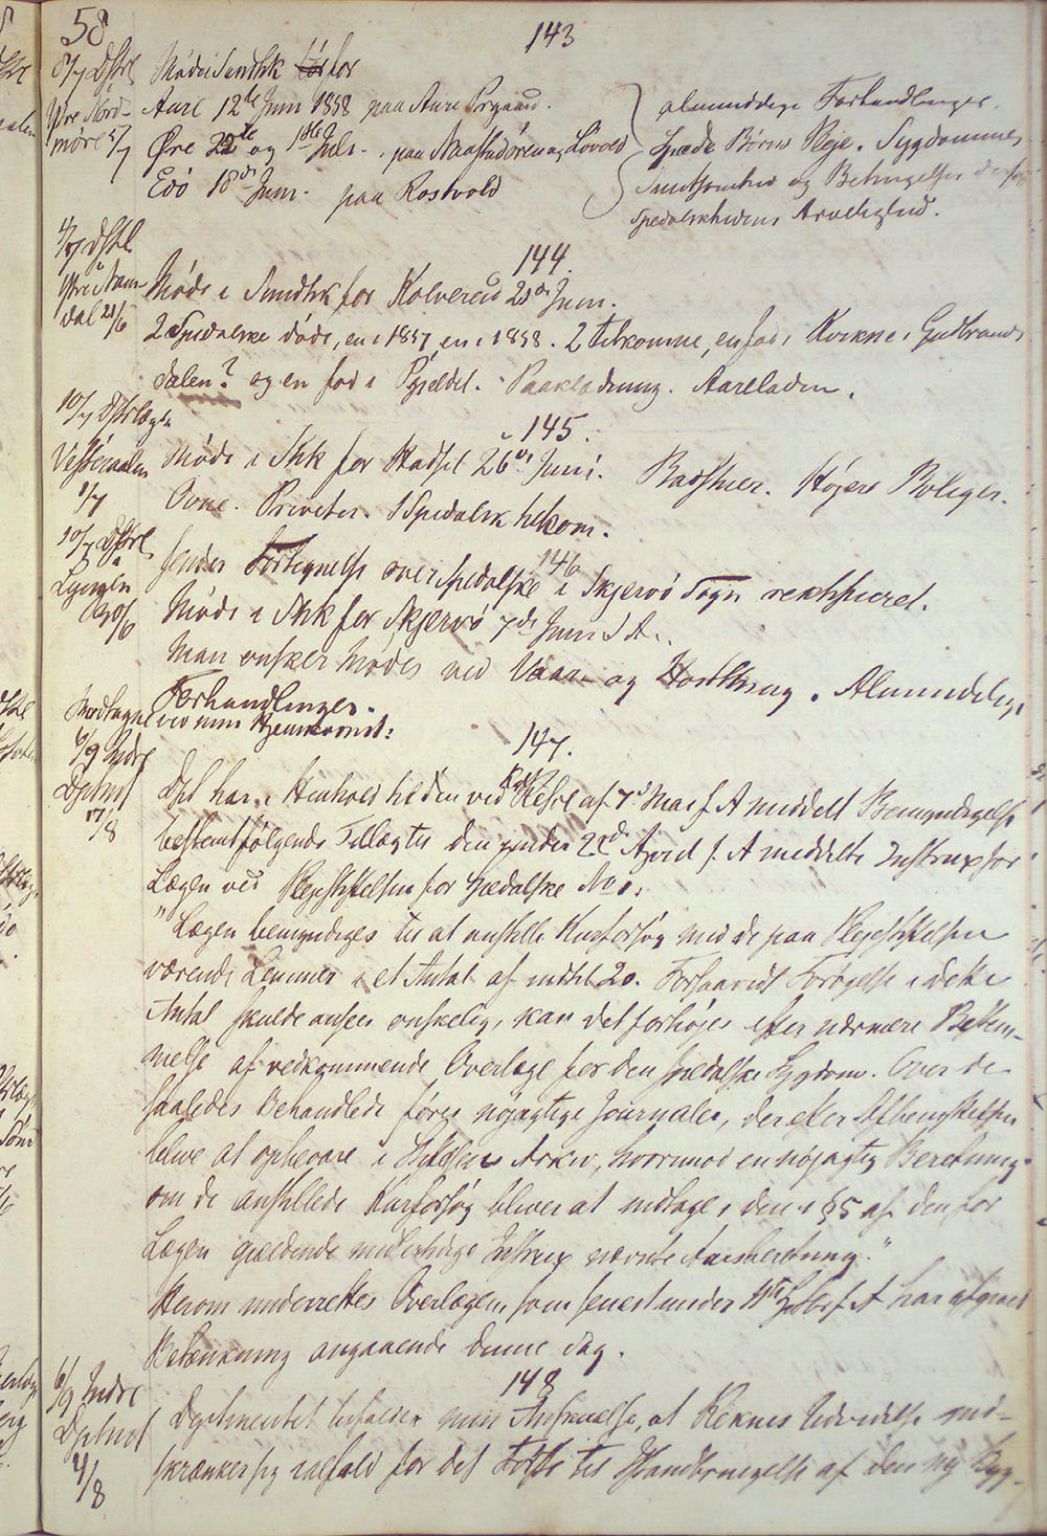 58
143
8/7 Dstrl
Møde i Sundhk for
Yre Nord-
møre 5/7
Aure 12te Juni 1858 paa Aure Prgaard.
Øre 22de og 1ste Juli - paa og
Edø 18de Juni - paa Rostvold
almindelige Forhandlinger.
Spæde Børns Pleje. Sygdomme,
og Betingelser
Spedalskhedens Arvelighed.
144.
Dstrl
Ytre Nam-
dal 21/6
Møde i Sundhk for Kolvereid Juni.
2 Spedalske døde, en i 1857, en i 1858. 2 tilkomne, en fød i Kvikne i Gudbrands
dalen? og en fød i Pgjeldet. Paaklædning. Aareladen.
145.
10/7 Dstrlæge
Vesteraalen
1/7
Møde i Shk for Hadsel 26de Juni. Badstuer. Højere Boliger.
Ovne. Priveter. 1 Spedalsk tilkom.
146
10/7 Dstrl
Lyngen
30/6
sender Fortegnelse over Spedalske i Skjervø Sogn rektificeret.
Møde i Shk for Skjervø 7de Juni d A.
Man ønsker Møder ved Vaar- og Høstthing. Almindelige
Forhandlinger.
Modtagne ved min Hjemkomst:
147.
6/9 Indre
Dptmt
17/8
Dpt har i Henhold til den ved Kgl Resol af 7de Mai f A meddelt Bemyndigelse
bestemt følgende Tillæg til den under 22de April f. A meddelte Instrux for
Lægen ved Plejestiftelsen for Spedalske No 1:
"Lægen bemyndiges til at anstille Kurforsøg med de paa Plejestiftelsen
værende Lemmer i et Antal af indtil 20. Forsaavidt Forøgelse i dette
Antal skulde ansees ønskelig, kan det forhøjes efter nærmere Bestem-
melse af vedkommende Overlæge for den spedalske Sygdom. Over de
saaledes Behandlede føres nøjagtige Journaler, der efter Afbenyttelsen
blive at opbevare i Stiftelsens Arkiv, hvorimod en nøjagtig Beretning
om de anstillede Kurforsøg bliver at indtage i den i §5 af den for
Lægen gjældende midlertidige Instrux nævnte Aarsberetning."
Herom underrettes Overlægen, som senest under f A har afgivet
Betænkning angaaende denne Sag.
148
6/9 Indre
Dptmt
21/8
Dptmentet tiltræder min Anskuelse, at Reknes Udvidelse ind-
skrænker sig ialfald for det Første til Istandbringelse af den ny Byg-